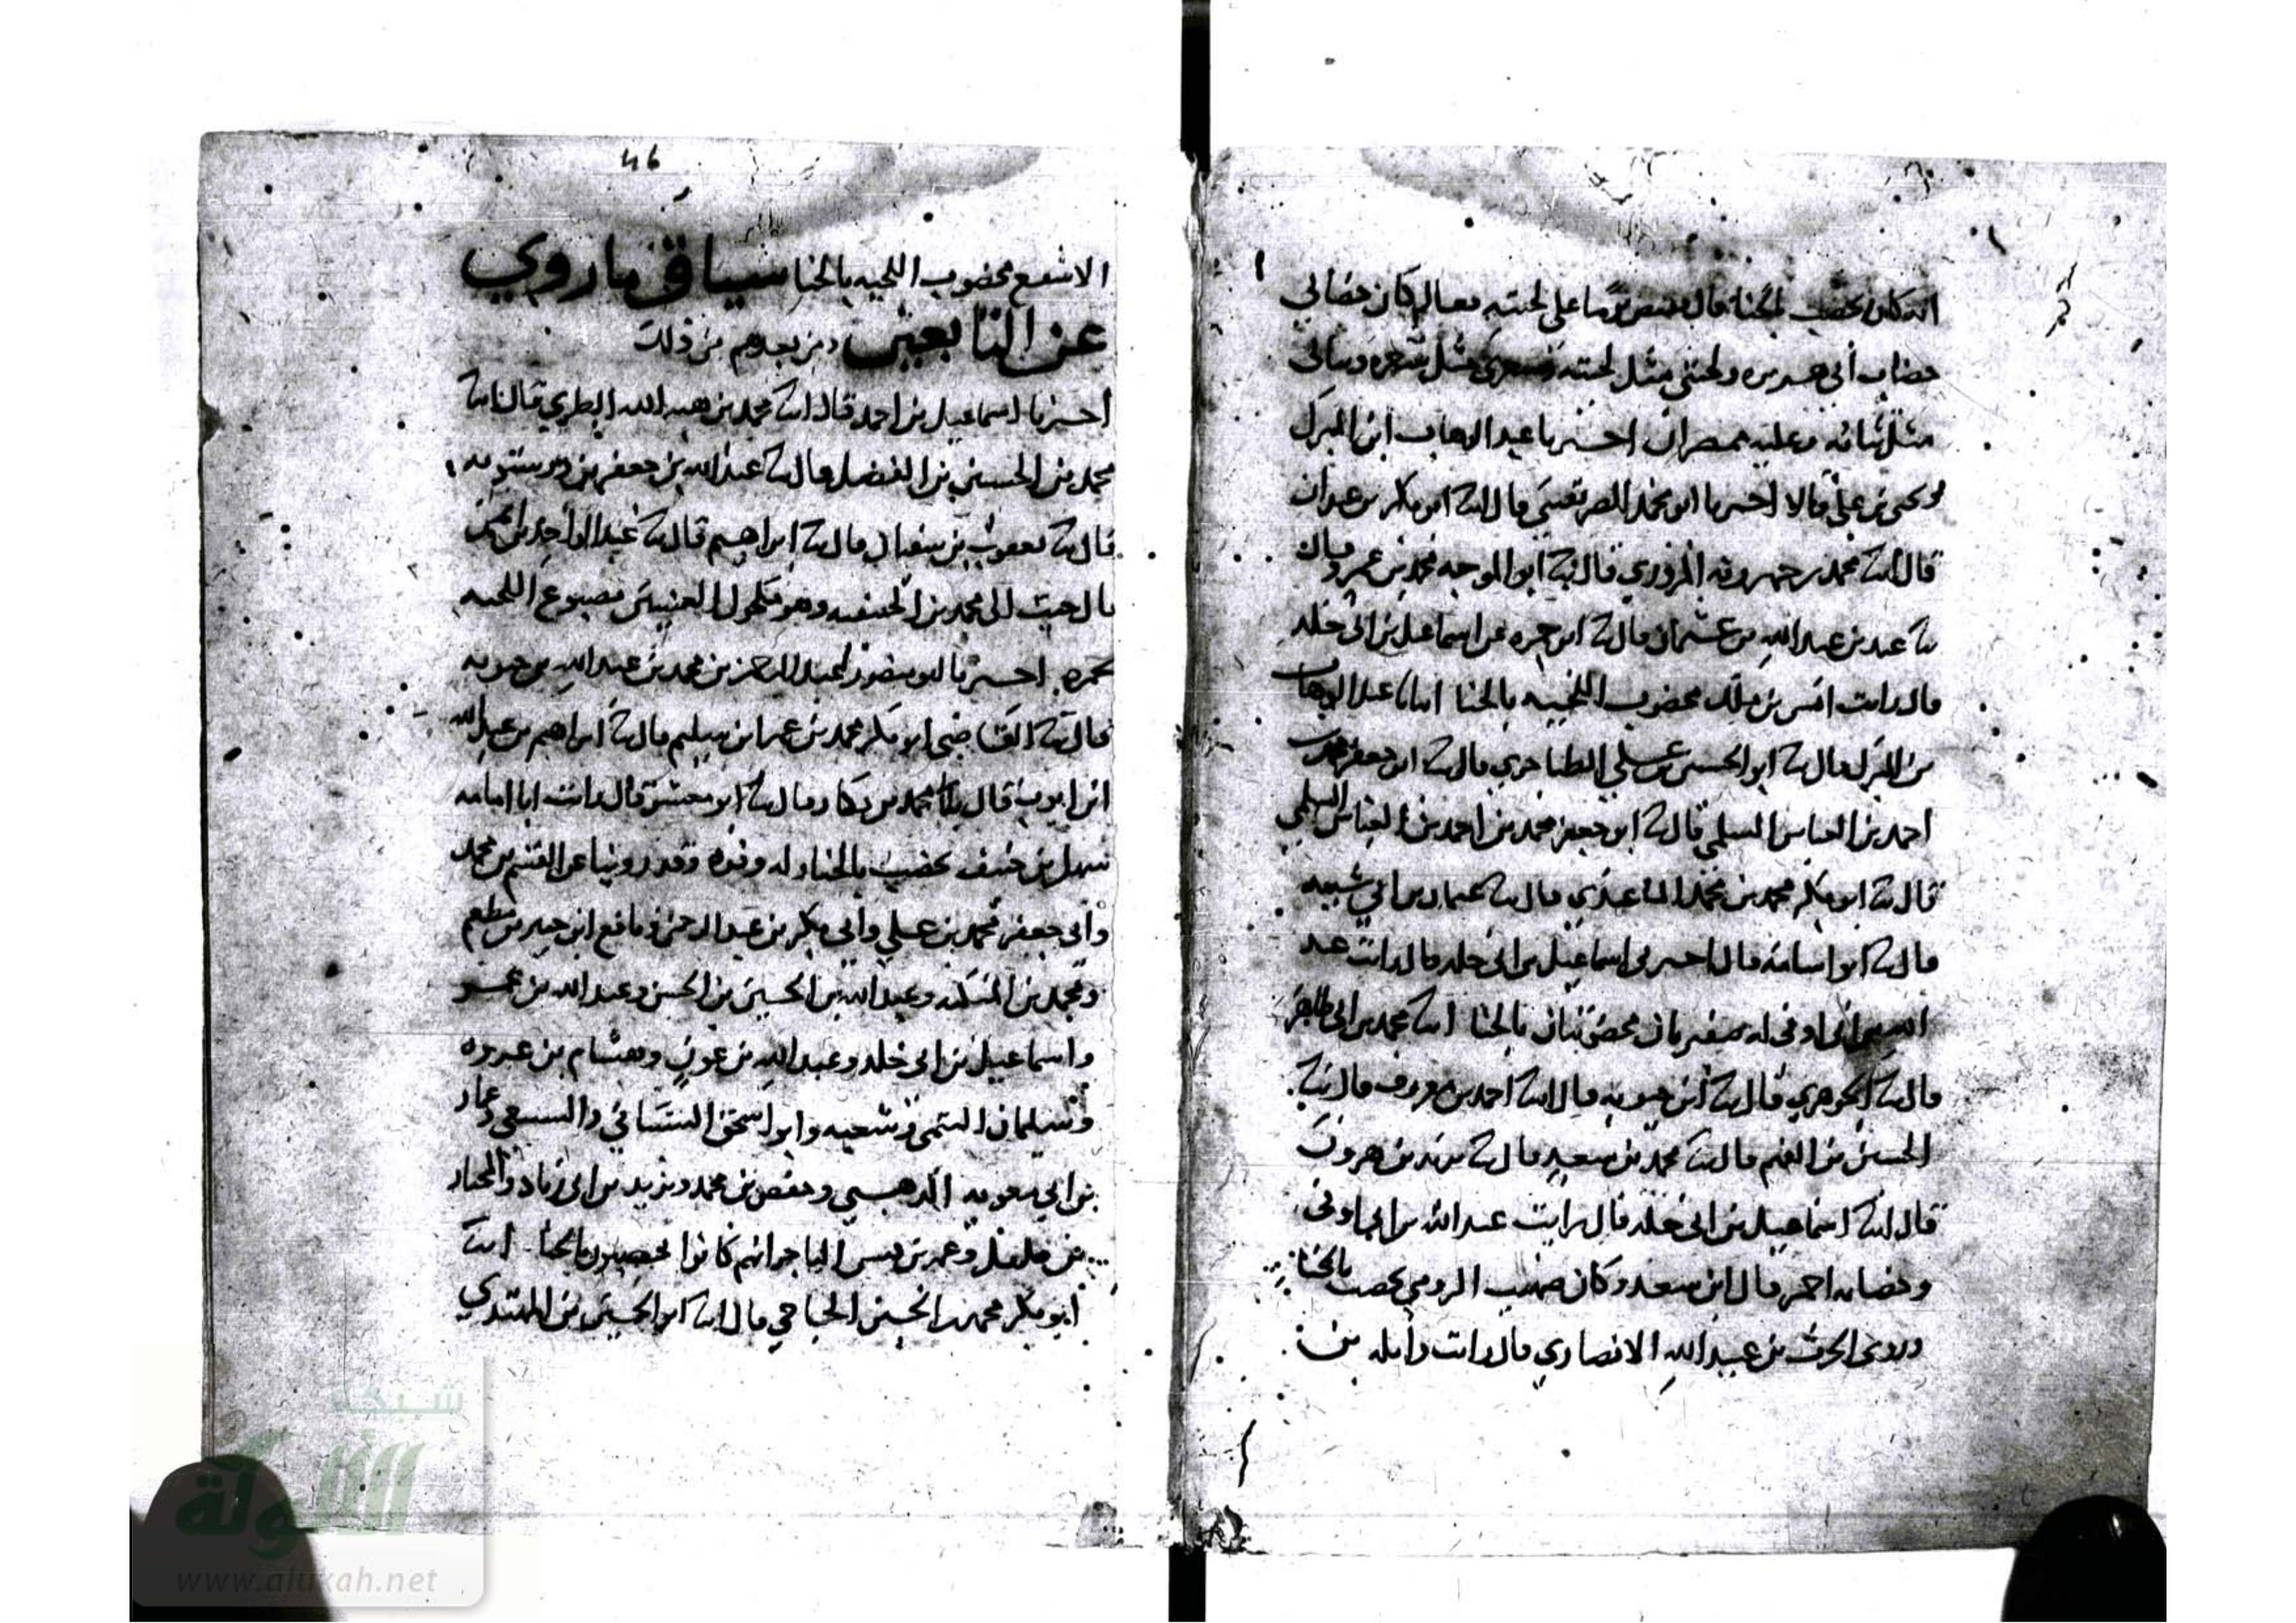 انه كان يخضب بالحنا قال فقبض يوما على لحيته فقال كان خضابي
خضاب أبي هريره ولحيتي مثل لحيته وشعري مثل شعره وثيابي
مثل ثيابه وعليه ممصران اخبرنا عبد الوهاب ابن المبرك
ويحيى بن علي قالا اخبرنا ابو محمد الصريفيني قال انا ابو بكر بن عبدان
قال انا محمد بن المروزي قال نا ابو الموجه محمد بن عمرو قال
نا عبد بن عبد الله بن عثمان قال نا ابو حمزه عن اسماعيل بن ابي خلد
قال رايت انس بن ملك مخضوب اللحيه بالحنا انبانا عبد الوهاب
بن المبرك قال نا ابو الحسين بن علي الطناجري قال نا ابو حفص
احمد بن العباس السلمي قال نا ابو جعفر محمد بن احمد بن العباس السلمي
قال نا ابو بكر محمد بن محمد الباغندي قال نا عثمان بن ابي شيبه
قال نا ابو اسامة قال اخبرني اسماعيل بن ابي خلد قال رايت عبد
الله بن ابي اوفى له ضفيرتان مخضوبتان بالحنا انا محمد بن ابي طاهر
قال نا الجوهري قال نا ابن حيويه قال انا احمد بن معروف قال نا
الحسين بن الفهم قال نا محمد بن سعد قال نا يزيد بن هرون
قال انا اسماعيل بن ابي خلد قال رايت عبد الله بن ابي اوفى
وخضابه احمر قال ابن سعد وكان صهيب الرومي يخضب بالحنا
وروى الحرث بن عبيد الله الانصاري قال رايت واثله بن
46
الاسقع مخضوب اللحيه بالحنا سياق ما روي
عن التابعين ومن بعدهم من ذلك
اخبرنا اسماعيل بن احمد قال انا محمد بن هبه الله الطبري قال انا
محمد بن الحسين بن الفضل قال نا عبد الله بن جعفر بن درستويه
قال نا يعقوب بن سفيان قال نا ابراهيم قال نا عبد الواحد بن ايمن
قال جيت الى محمد بن الحنفيه وهو مكحول العينين مصبوغ اللحيه
بحمره اخبرنا ابو منصور عبد العزيز بن محمد بن عبد الله بن حيويه
قال نا القاضي ابو بكر محمد بن عمر ابن سليم قال نا ابراهيم بن عبد الله
ابن ايوب قال نا محمد بن بكار قال نا ابو معشر قال رايت ابا امامه
سهل بن حنيف يخضب بالحنا وله وفره وقد روينا عن القسم بن محمد
وأبي جعفر محمد بن علي وابي بكر بن عبد الرحمن ونافع ابن جبير بن مطعم
ومحمد بن المنكدر وعبد الله بن الحسين بن الحسن وعبد الله بن
واسماعيل بن ابي خلد وعبد الله بن عون وهشام بن عروه
وسليمان التيمي وشعبه وابو اسحق الشيباني والسبيعي وعمار
بن ابي معويه الدهني وحفص بن محمد ويزيد بن ابي زياد والمختار
بن فلفل وعمر بن قيس الماصر انهم كانوا يخضبون بالحنا انا
ابو بكر محمد بن الحسين الحاجي قال انا ابو الحسين بن المهتدي
شبكة
الألوكة
www.alukah.net